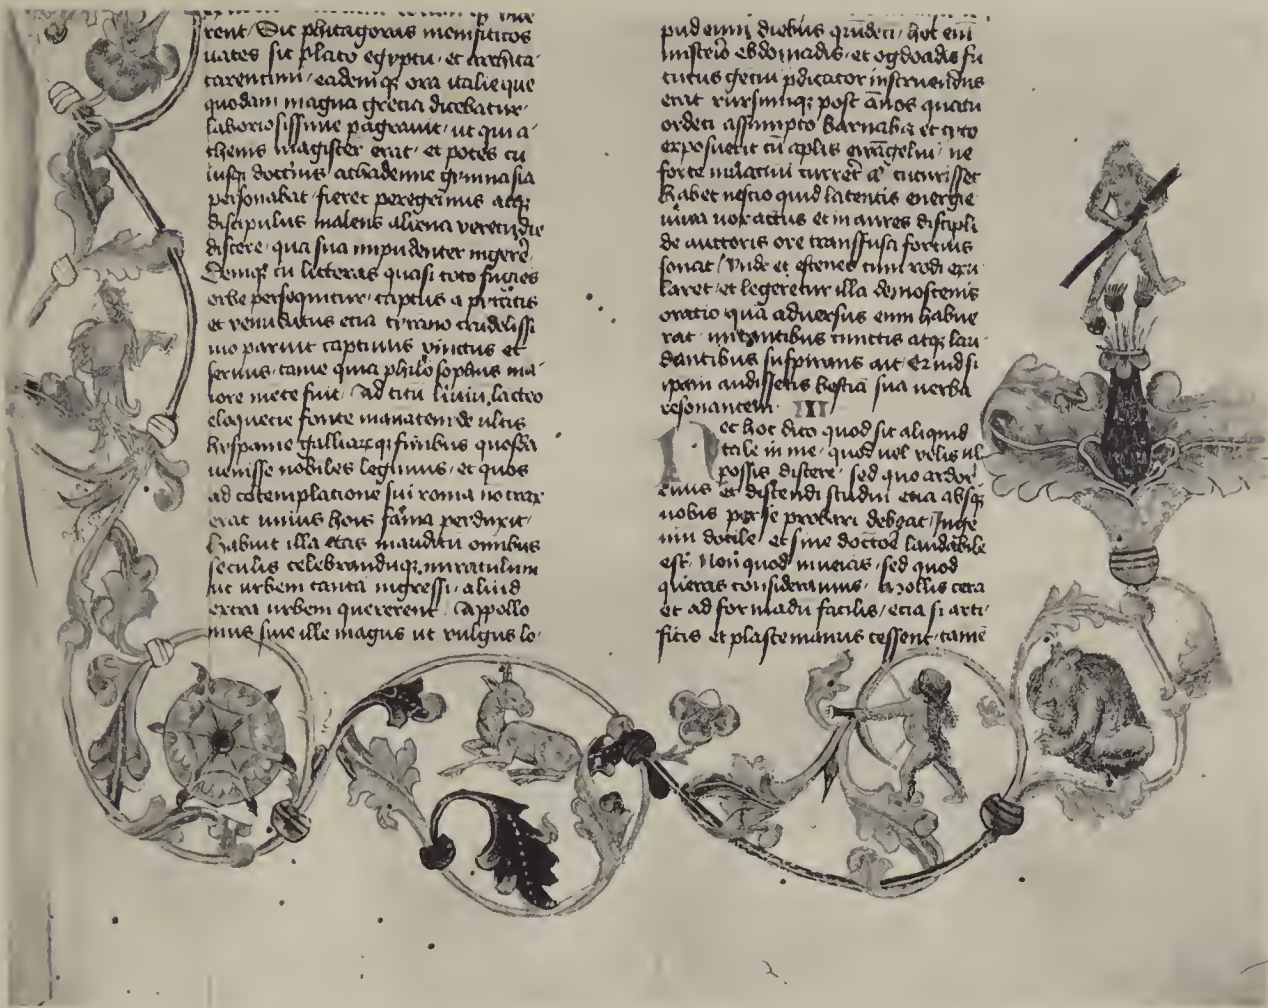 rent · Sic phitagoras memfiticos
uates sic plato egyptū · et archita
tarentinū · eademq; ora italie que
quōdam magna grecia dicebatur ·
laboriosissime pagrauit · ut qui a
thenis magister erat · et potēs cu
iusq; doctrīas achademie gymnasia
personabat · fieret peregrinus atq;
discipulus malens aliena verecūdie
discere · quā sua impudenter ingerē
Deniq; cū litteras quasi toto fugiētes
orbe persequitur · captus a pyratis
et venūdatus etiā tyranno crudelissi
mo paruit captiuus vinctus et
seruus · tamē quia philosophus ma
iore emēte fuit · Ad titū liuiū lacteo
eloquētie fonte manātem de ultis
hyspanie galliarūq; finibus quosdā
uenisse nobiles legimus · et quos
ad cōtemplationē sui roma nō trax
erat unius hoīs fama perduxit ·
Habuit illa etas inauditū omībus
seculis celebrandūq; miraculum
ut urbem tantā ingressi · aliud
extra urbem quererent · Appollo
nius siue ille magus ut vulgus lo ·
pud eum diebus qndeci · hoc eni
misterio ebdomadis · et ogdoadis fu
turus gētiū pdicator instruendus
erat rursumq; post ānos quatu
ordeci assumpto barnaba et tyto
exposuerit cū aplis ewāgeliū · ne
forte in uacuū curreret aut cucurisset
Habet nescio quid latentis energie
uiua uox actus et in aures discipli
de auctoris ore transfusa fortius
sonat / Unde et eschenes cum rodi exu
laret · et legeretur illa demostenis
oratio quā aduersus eum habue
rat · mirantibus cunctis atq; lau
dantibus suspirans ait · Quid si
ipam audissetis bestiā sua uerba
resonantem · III
Nec hoc dico quod sit aliquid
tale in me · quod uel velis ul
possis discere · sed quo ardor
eius et discendi studiū etiā absq;
nobis per se probari debeat · Inge
niū docile et sine doctore laudabile
est · Non quod inuenias · sed quod
queras consideramus · Mollis cera
et ad formādū facilis · etiā si arti ·
ficis et plaste manus cessent · tamē